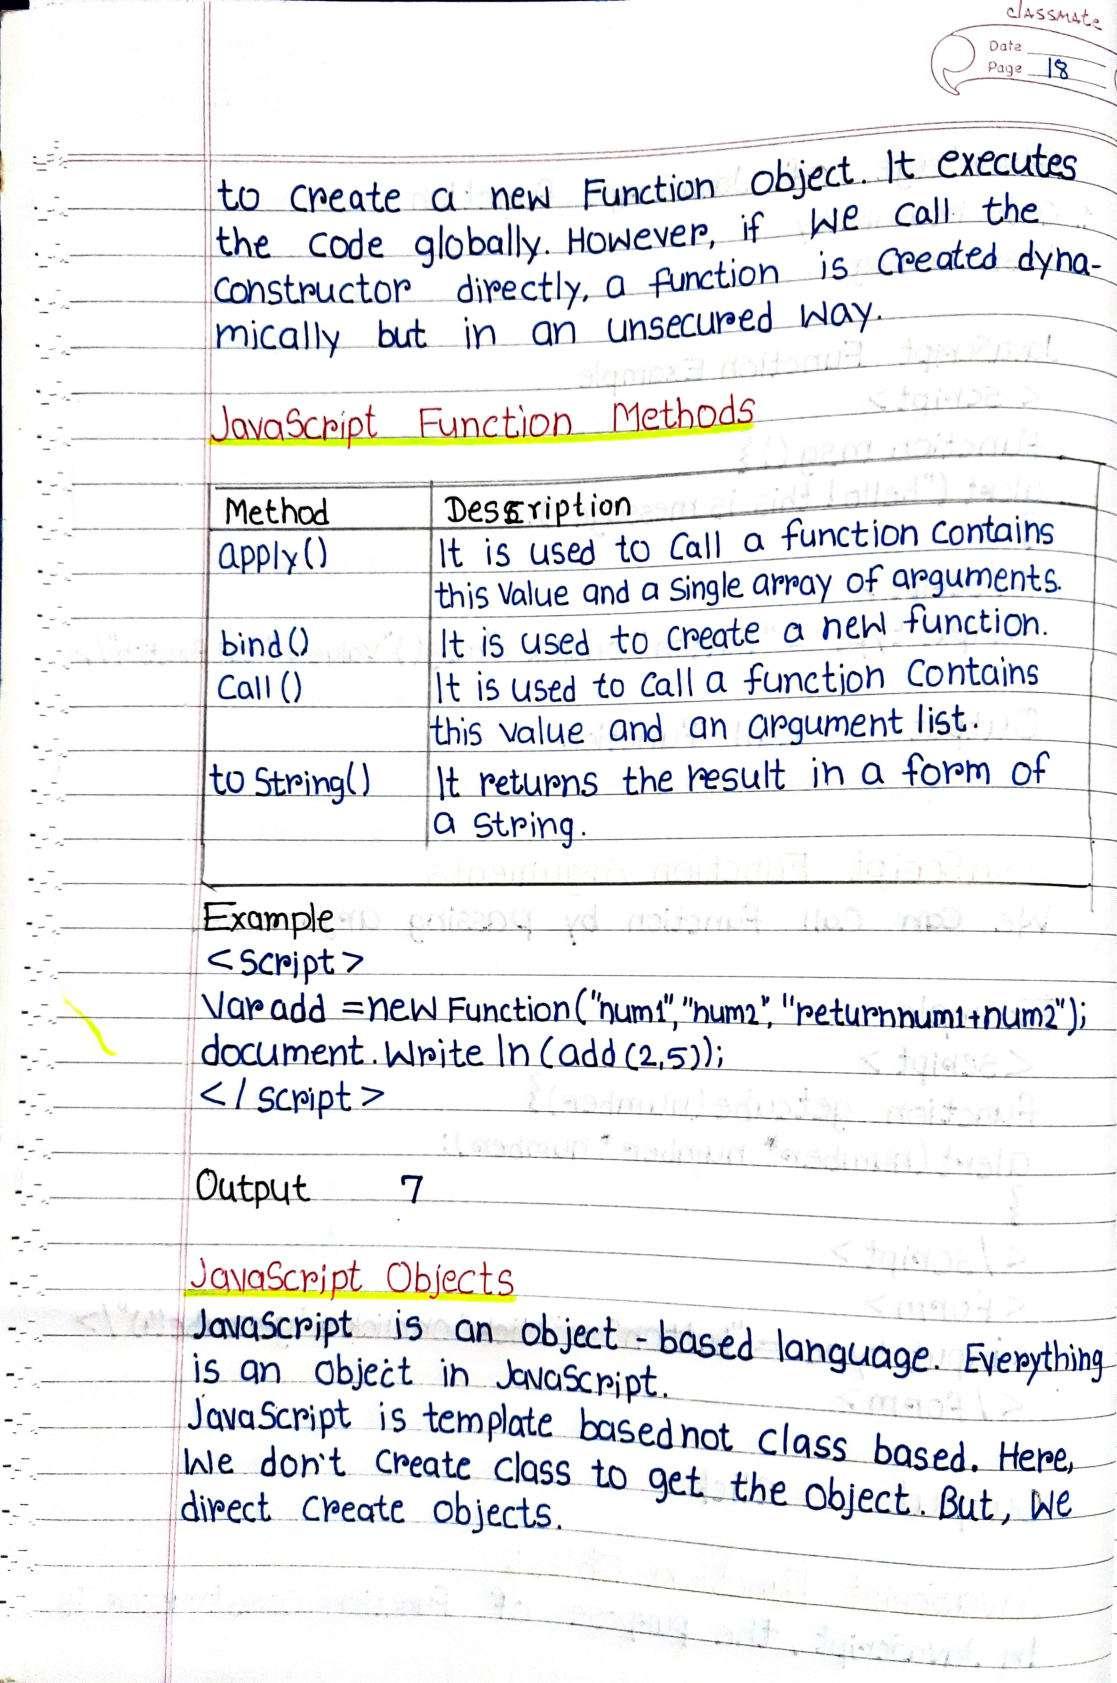 classmate
Date
Page 18
to create a new Function object. It executes
the code globally. However, if we call the
constructor directly, a function is created dyna-
mically but in an unsecured way.
JavaScript Function Methods
Method Description
apply() It is used to call a function contains
this value and a single array of arguments.
bind() It is used to create a new function.
Call() It is used to call a function contains
this value and an argument list.
to String() It returns the result in a form of
a string.
Example
<script>
Var add = new Function("num1", "num2", "returnnum1+num2");
document.Write ln (add (2,5));
</script>
Output 7
JavaScript Objects
JavaScript is an object-based language. Everything
is an object in JavaScript.
JavaScript is template based not class based. Here,
We don't create class to get the object. But, we
direct create objects.